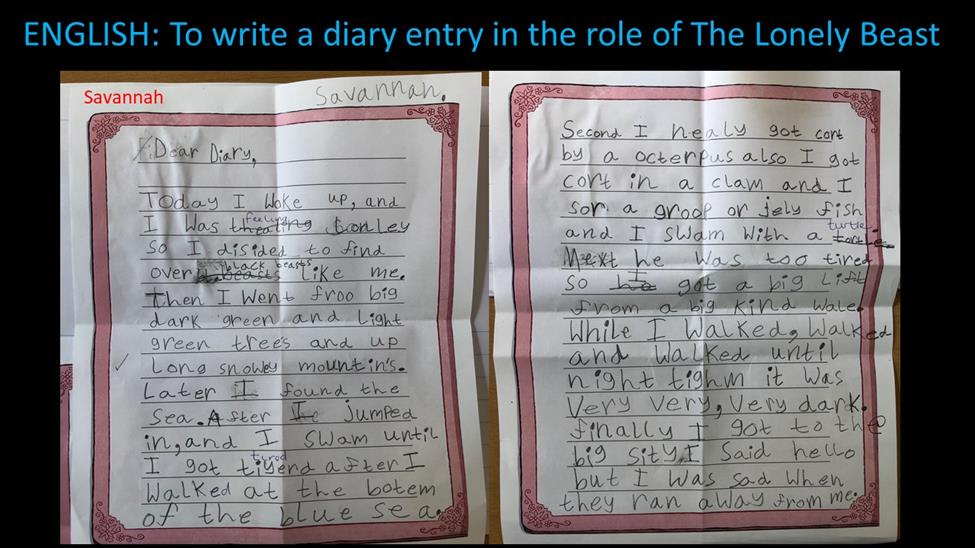 ENGLISH: To write a diary entry in the role of The Lonely Beast
Savannah
Savannah.
Dear Diary,
Today I woke up, and
I was feeling lonley
so I disided to find
over black beasts like me.
Then I went froo big
dark green and light
green trees and up
long snowey mountin's.
Later I found the
sea. After I jumped
in, and I swam until
I got tired after I
walked at the botem
of the blue sea.
Second I nealy got cort
by a octerpus also I got
cort in a clam and I
sor a groop or jely fish
and I swam with a turtle.
Next he was too tired
so I got a big lift
from a big kind wale.
While I walked, walked
and walked until
night tighm it was
very very, very dark.
finally I got to the
big sity I said hello
but I was sad when
they ran away from me.